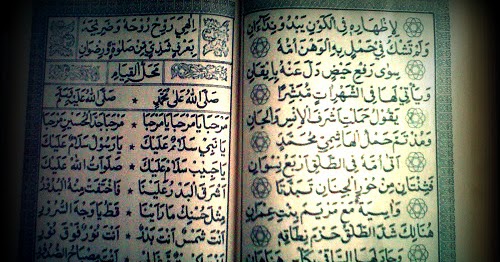 لِإِظْهَارِهِ فِي الْكَوْنِ يَبْدُو
وَلَمْ تَشْكُ فِي حَمْلٍ بِهِ الْوَهْنَ أُمُّهُ
سِوَى رَفْعِ حَيْضٍ دَلَّ عَنْهُ بِإِيقَانِ
وَيَأْتِي لَهَا فِي الشَّهْرِ آتٍ مُبَشِّرًا
يَقُولُ حَمَلْتِ أَشْرَفَ الْإِنْسِ وَالْجَانِ
حَمْلُهَا مُحَمَّدٍ
أَتَى أُمَّهُ فِي الطَّلْقِ أَرْبَعُ نِسْوَانِ
فَثِنْتَانِ مِنْ حُورِ الْجِنَانِ تَبَدَّتَا
وَآسِيَةٌ مَعْ مَرْيَمٍ بِنْتِ عِمْرَانِ
هُنَالِكَ شَدَّ الطَّلْقُ حَزْمَ نِطَاقِهِ
إِلٰهِي رَوِّحْ رُوحَهُ وَضَرِيحَهُ
بِعَرْفٍ شَذِيٍّ مِنْ صَلَاةٍ وَرِضْوَانِ
مَحَلُّ الْقِيَامِ
صَلَّى اللهُ عَلَى مُحَمَّدٍ * صَلَّى اللهُ عَلَيْهِ وَسَلَّمَ
مَرْحَبًا يَا مَرْحَبًا يَا مَرْحَبًا * مَرْحَبًا جَدَّ الْحُسَيْنِ مَرْحَبًا
يَا نَبِي سَلَامٌ عَلَيْكَ * يَا رَسُولُ سَلَامٌ عَلَيْكَ
يَا حَبِيبُ سَلَامٌ عَلَيْكَ * صَلَوَاتُ اللهِ عَلَيْكَ
أَشْرَقَ الْبَدْرُ عَلَيْنَا * فَاخْتَفَتْ مِنْهُ الْبُدُورُ
مِثْلَ حُسْنِكَ مَا رَأَيْنَا * قَطُّ يَا وَجْهَ السُّرُورِ
أَنْتَ شَمْسٌ أَنْتَ بَدْرٌ * أَنْتَ نُورٌ فَوْقَ نُورِ